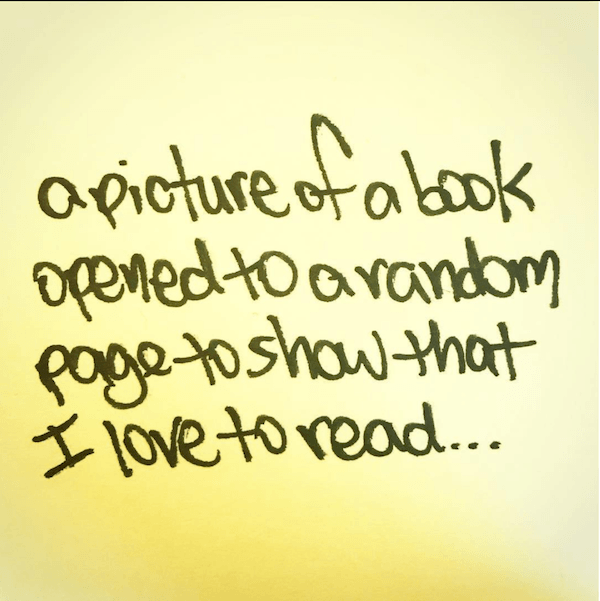 a picture of a book
opened to a random
page to show that
I love to read...